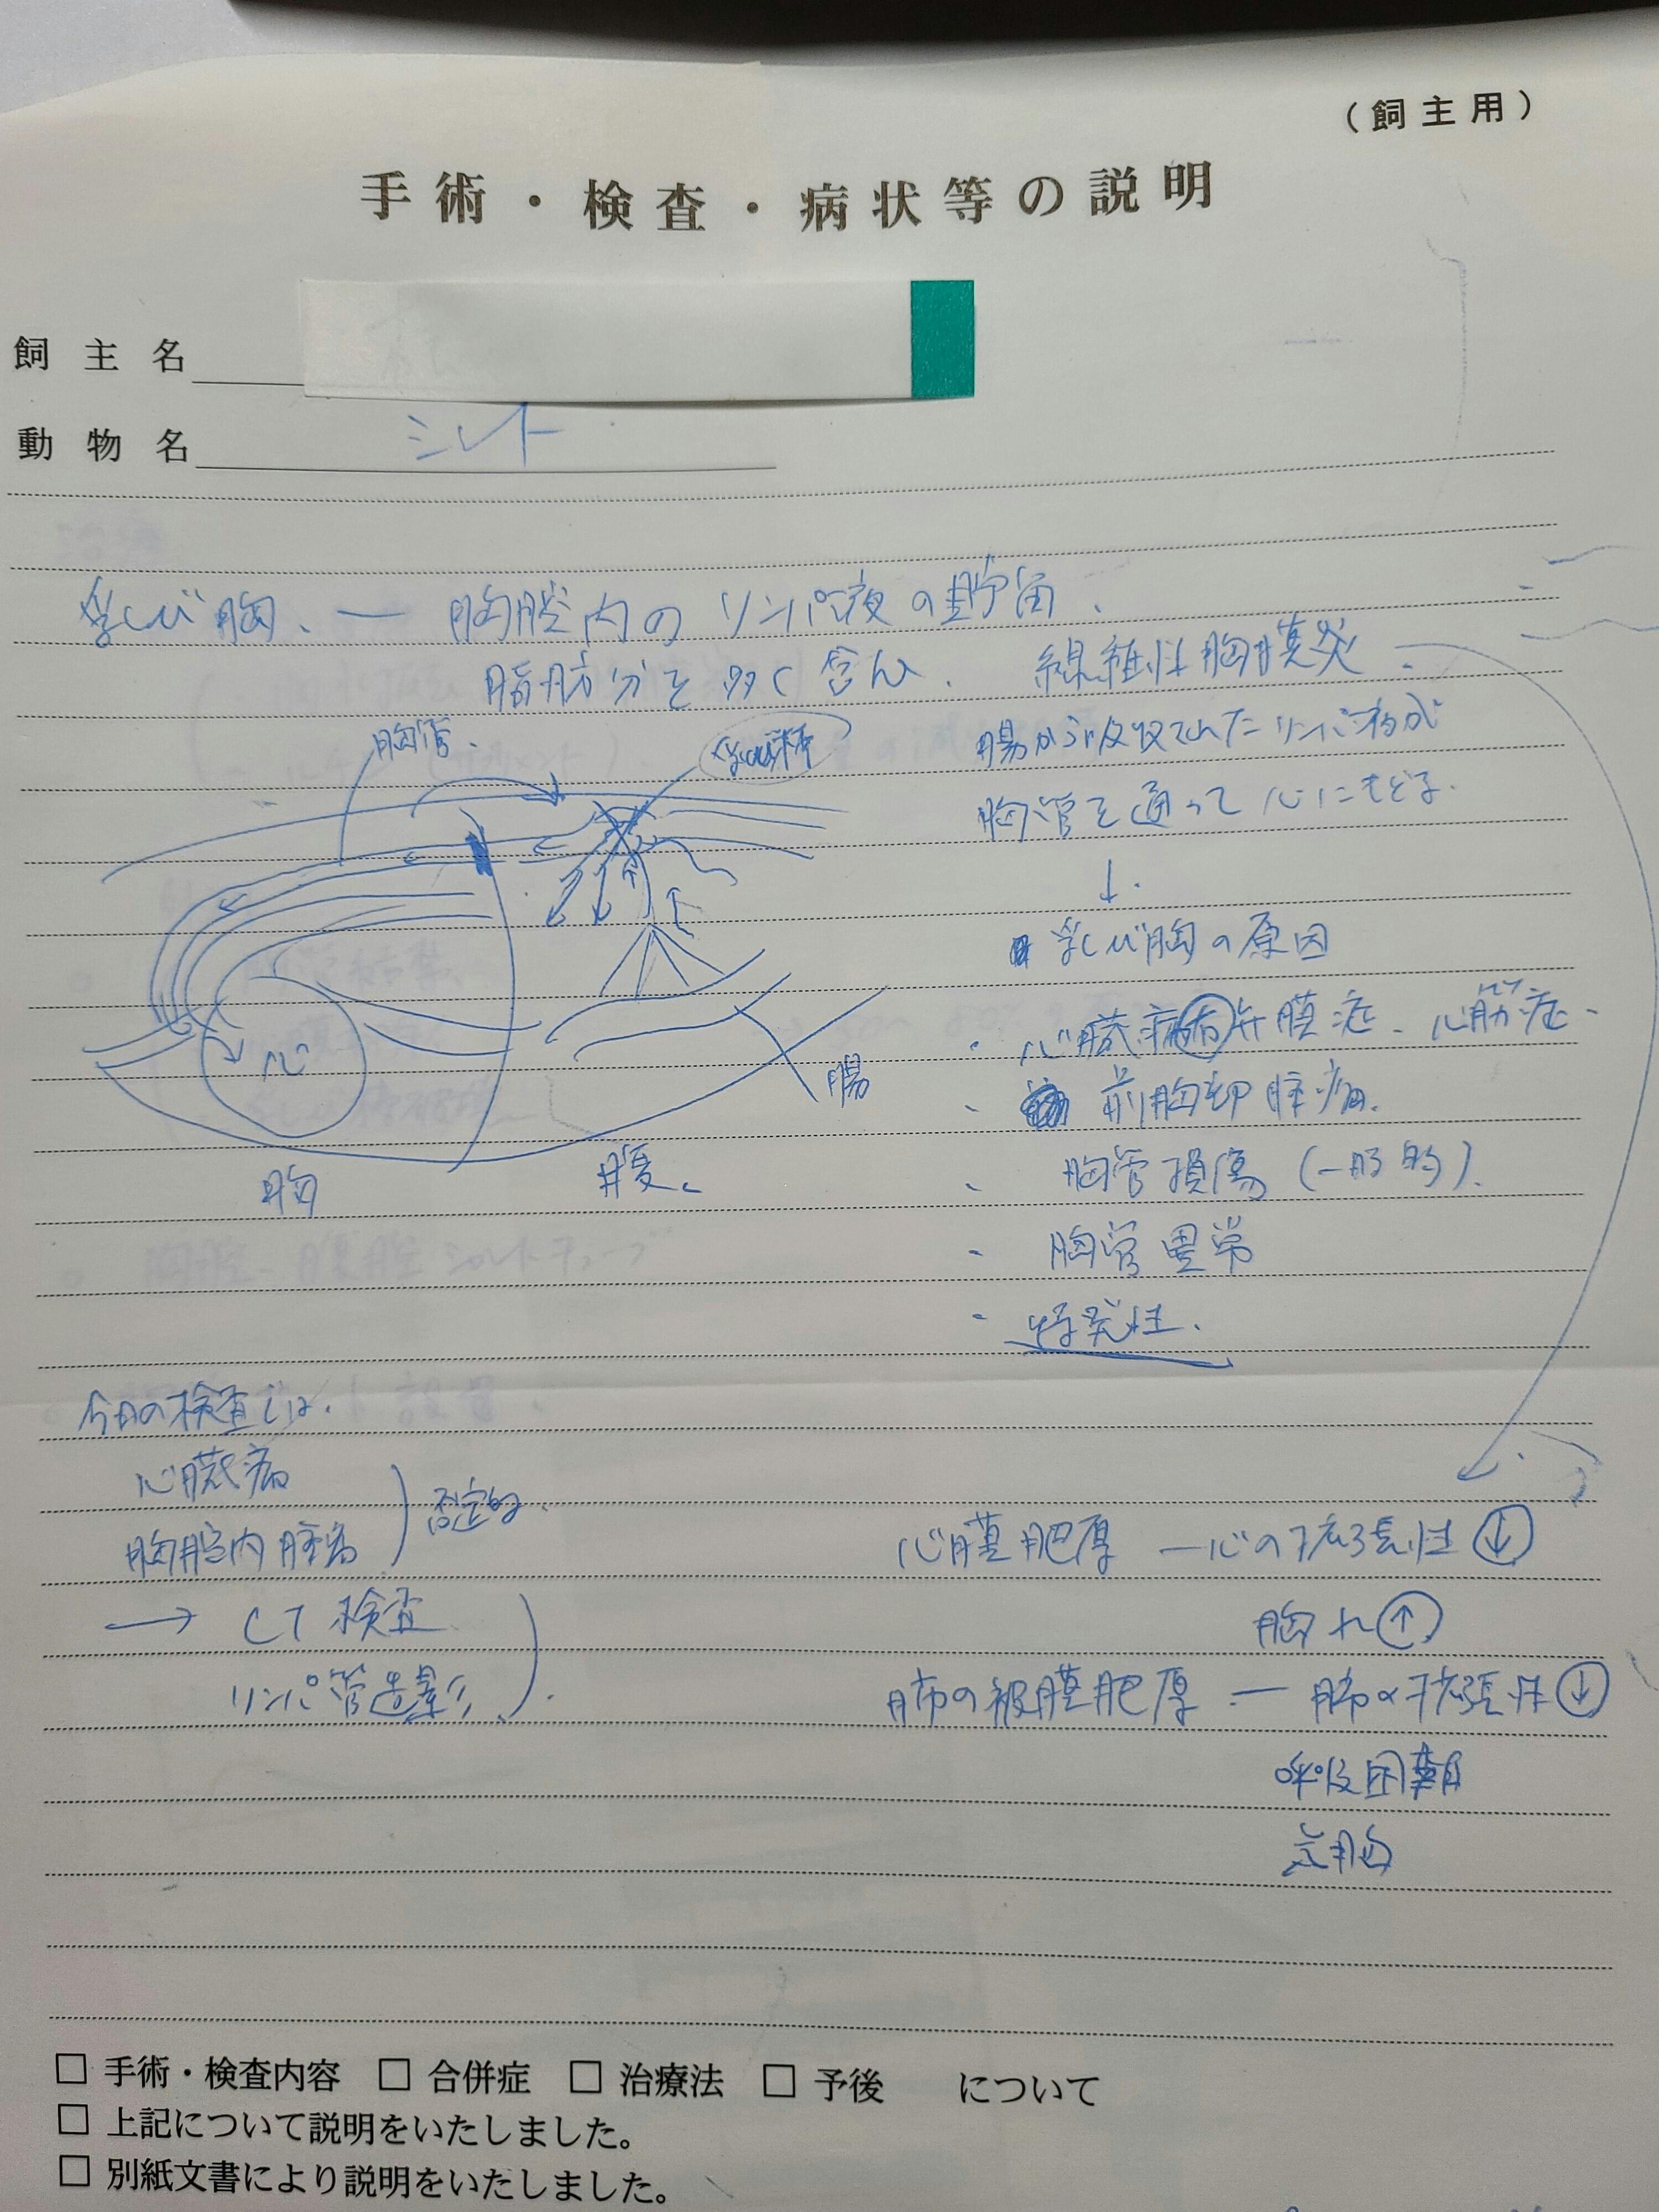 （飼主用）
手術・検査・病状等の説明
飼主名
動物名 ミルト
乳び胸、— 胸腔内のリンパ液の貯留、
脂肪分を多く含ん、
線維性胸膜炎
腸から吸収されたリンパ、脂肪が
胸管を通って心にもどる.
↓
乳び胸の原因
・心臓病 弁膜症、心筋症、
・前胸部腫瘤.
・胸管損傷 (一般的).
・胸管異常
・特発性.
胸管. 乳び槽
心
腸
胸 腹
今日の検査では、
心臓病
胸腔内腫瘤 否定的、
→ CT 検査
リンパ管造影
心膜肥厚 — 心の拡張性 ↓
胸水 ↑
肺の被膜肥厚 — 肺の拡張性 ↓
呼吸困難
気胸
□ 手術・検査内容 □ 合併症 □ 治療法 □ 予後 について
□ 上記について説明をいたしました。
□ 別紙文書により説明をいたしました。